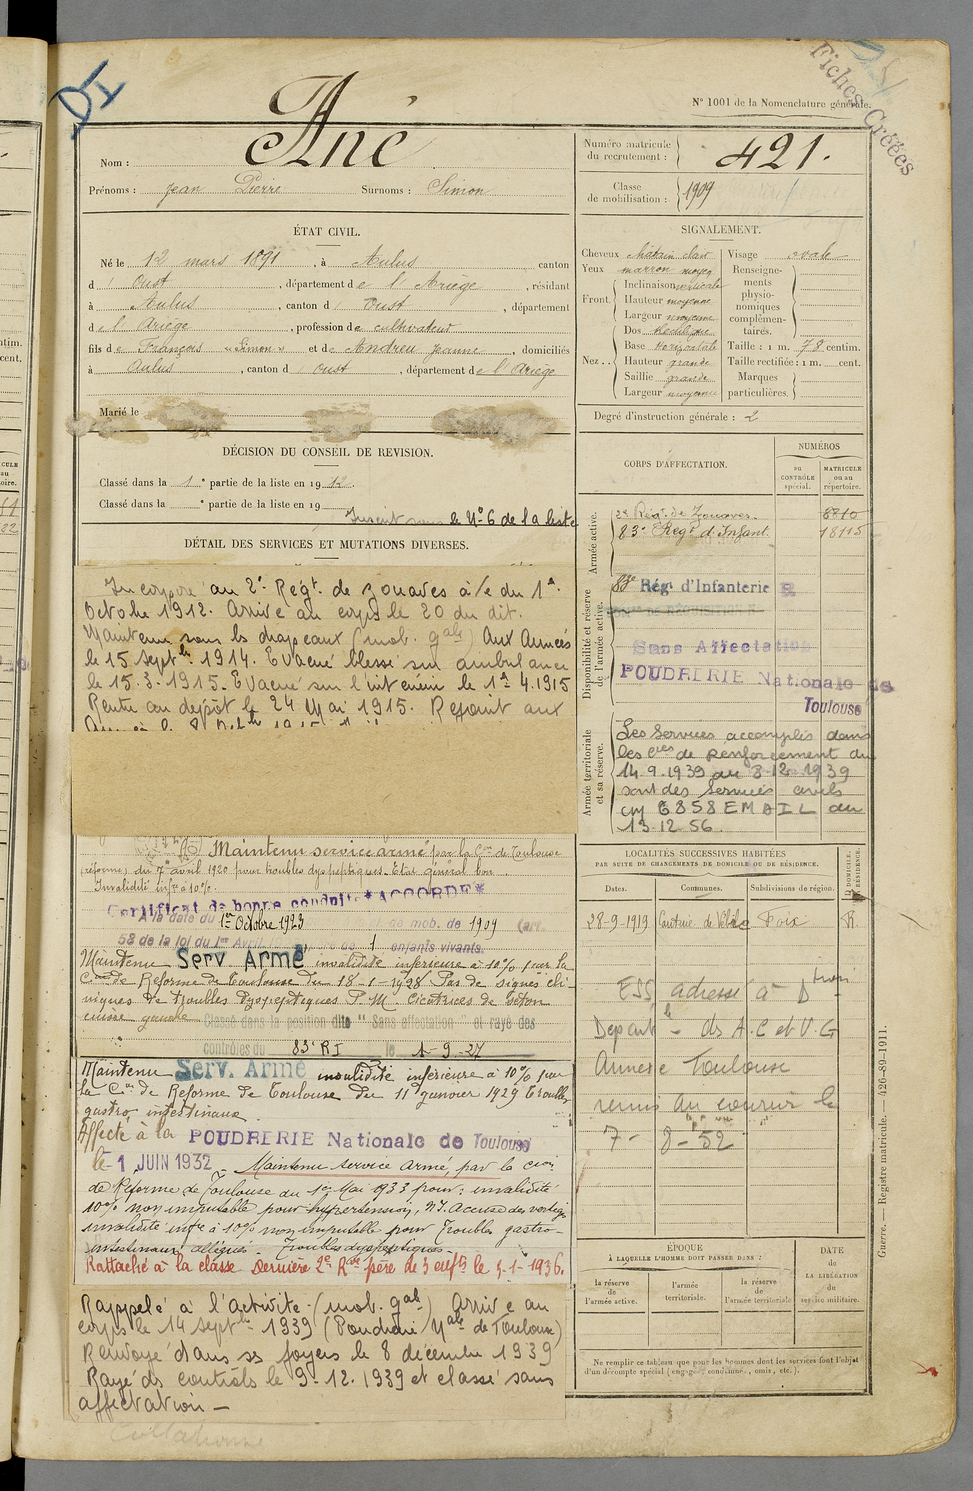 DI
Fiches Créées
N° 1001 de la Nomenclature générale.
Nom : Ané
Prénoms : Jean Pierre Surnoms : Simon
Numéro matricule du recrutement : 421.
Classe de mobilisation : 1909
ÉTAT CIVIL.
Né le 12 mars 1891, à Aulus canton
d' Oust, département de l'Ariège, résidant
à Aulus, canton d' Oust, département
de l'Ariège, profession de cultivateur
fils de François "Simon" et de Andreu Jeanne, domiciliés
à Aulus, canton d' Oust, département de l'Ariège
Marié le
SIGNALEMENT.
Cheveux châtain clair
Yeux marron moyen
Front. Inclinaison verticale
Hauteur moyenne
Largeur moyenne
Nez . . Dos rectiligne
Base horizontale
Hauteur grande
Saillie grande
Largeur moyenne
Visage ovale
Renseignements physionomiques complémentaires.
Taille : 1 m. 78 centim.
Taille rectifiée : 1 m. cent.
Marques particulières.
Degré d'instruction générale : 2
DÉCISION DU CONSEIL DE REVISION.
Classé dans la 1e partie de la liste en 1912.
Classé dans la e partie de la liste en 19
Inscrit sous le N° 6 de la liste
DÉTAIL DES SERVICES ET MUTATIONS DIVERSES.
Incorporé au 2e Regt de Zouaves à/c du 1er
Octobre 1912. Arrivé au corps le 20 du dit.
Maintenu sous les drapeaux (mob. gale) Aux Armées
le 15 septbre 1914. Evacué blessé sur ambulance
le 15.3.1915. Evacué sur l'intérieur le 1er 4.1915
Rentré au dépôt le 24 Mai 1915. Rejoint aux
Maintenu service armé par la Con de Toulouse
(réforme) du 7 avril 1920 pour troubles dyspeptiques. Etat général bon
Invalidité infre à 10%.
Certificat de bonne conduite "ACCORDÉ"
A la date du 1er Octobre 1923 de mob. de 1909 (art.
58 de la loi du 1er Avril de 1 enfants vivants.
Maintenu Serv Armé invalidité inférieure à 10% par la
Con de Reforme de Toulouse du 18-1-1928 Pas de signes cli-
niques de troubles dyspeptiques P.M. Cicatrices de séton
cuisse gauche Classé dans la position dite "Sans affectation" et rayé des
contrôles du 83e RI le 1-9-27
Maintenu Serv. Armé invalidité inférieure à 10% par
la Con de Reforme de Toulouse du 11 janvier 1929 Troubles
gastro intestinaux
Affecté à la POUDRERIE Nationale de Toulouse
le 1 JUIN 1932 Maintenu service armé, par la Con
de Réforme de Toulouse du 1er Mai 1933 pour : invalidité
10% non imputable pour hypertension, N.I. Accuse des vertiges
invalidité infre à 10% non imputable pour Troubles gastro-
intestinaux allégués. Troubles dyspeptiques.
Rattaché à la classe Dernière 2e Rve père de 3 enfts le 5-1-1936.
Rappelé à l'Activité (mob. gale) Arrivé au
corps le 14 septbre 1939 (Poudrerie Nale de Toulouse)
Renvoyé dans ses foyers le 8 décembre 1939
Rayé des contrôles le 9-12.1939 et classé sans
affectation —
CORPS D'AFFECTATION.
NUMÉROS
au CONTRÔLE spécial.
MATRICULE ou au répertoire.
Armée active.
2e Régt de Zouaves. 8710
83e Régt d'Infant. 18115
Disponibilité et réserve de l'armée active.
83e Régt d'Infanterie
Sans Affectation
POUDRERIE Nationale de
Toulouse
Armée territoriale et sa réserve.
Les services accomplis dans
les cies de renforcement du
14.9.1939 au 8-12-1939
sont des services civils
6858 EMAIL du
13.12.56.
LOCALITÉS SUCCESSIVES HABITÉES
PAR SUITE DE CHANGEMENTS DE DOMICILE OU DE RÉSIDENCE.
Dates. Communes. Subdivisions de région. D DOMICILE. R RÉSIDENCE.
28-9-1919 Foix R.
ESS adressé à Don
Départle ds A.C et V.G
Annexe Toulouse
remis au courrier le
7- 8-52
ÉPOQUE
À LAQUELLE L'HOMME DOIT PASSER DANS :
la réserve de l'armée active.
l'armée territoriale.
la réserve de l'armée territoriale
DATE de LA LIBÉRATION du service militaire.
Ne remplir ce tableau que pour les hommes dont les services font l'objet
d'un décompte spécial (engagé, condamné, omis, etc.).
Guerre. — Registre matricule. — 426-89-1911.